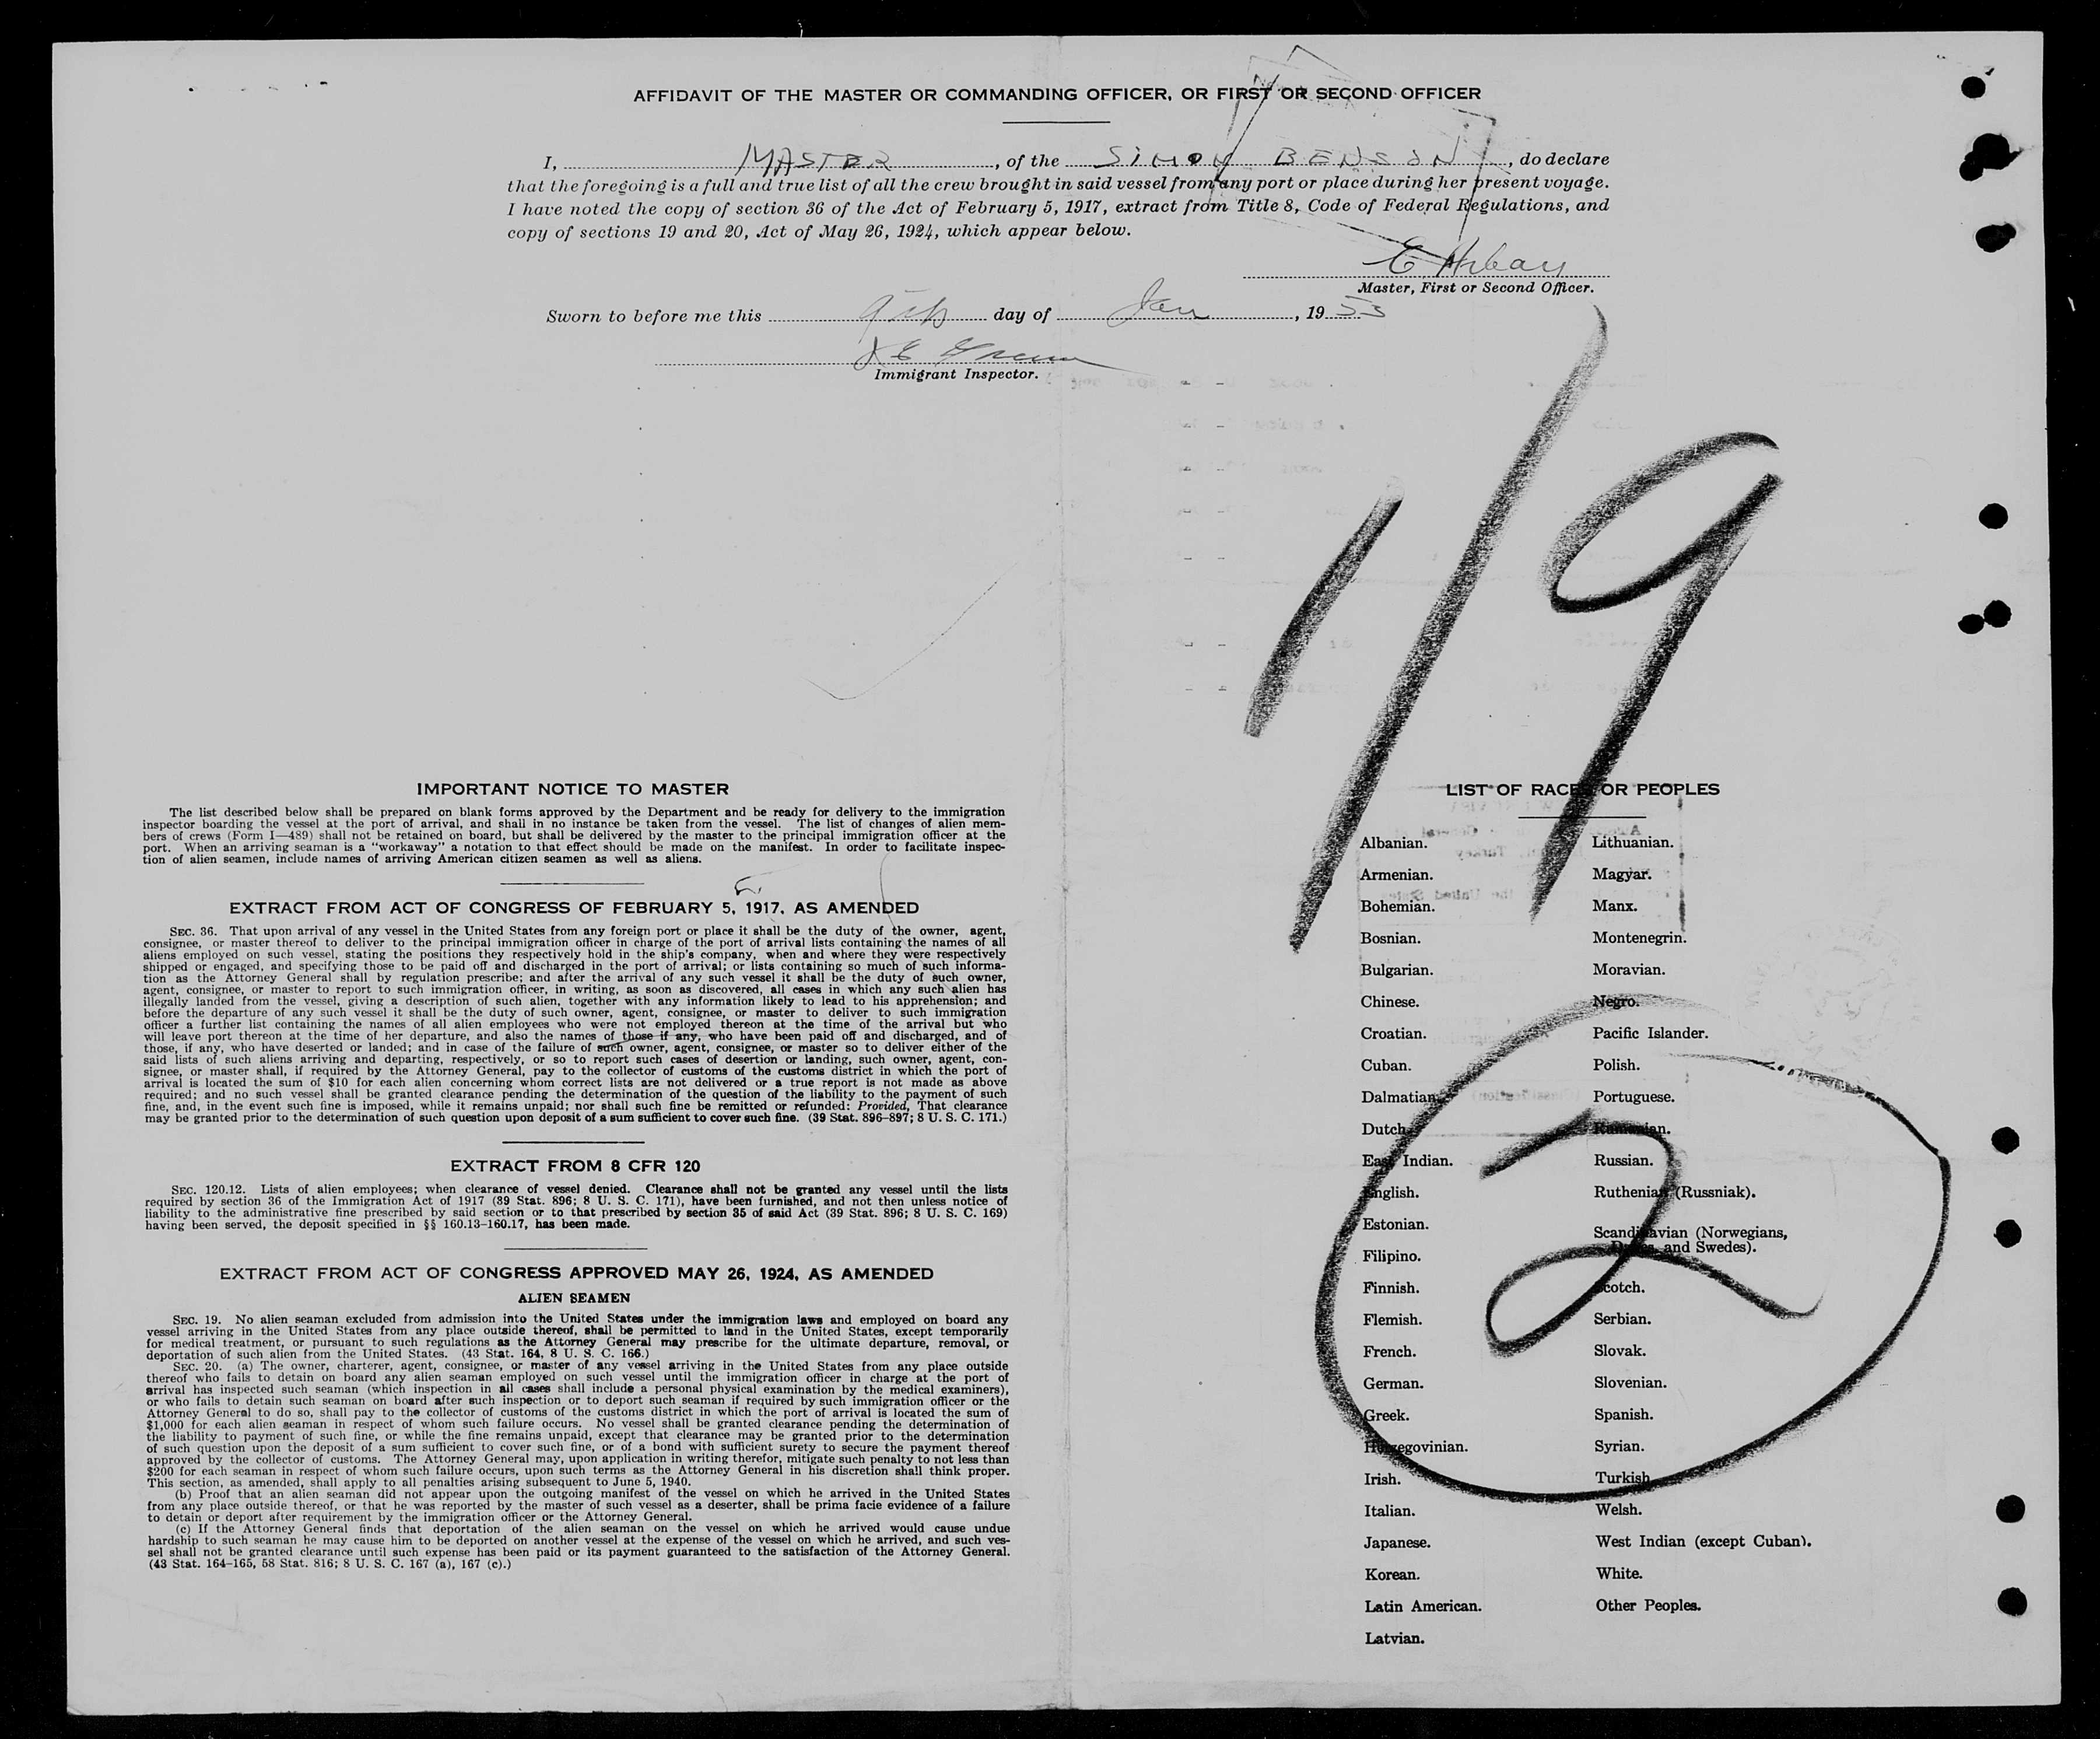 AFFIDAVIT OF THE MASTER OR COMMANDING OFFICER, OR FIRST OR SECOND OFFICER
I, MASTER, of the SIMON BENSON, do declare
that the foregoing is a full and true list of all the crew brought in said vessel from any port or place during her present voyage.
I have noted the copy of section 36 of the Act of February 5, 1917, extract from Title 8, Code of Federal Regulations, and
copy of sections 19 and 20, Act of May 26, 1924, which appear below.
Master, First or Second Officer.
Sworn to before me this 9th day of Jan, 1953
Immigrant Inspector.
1/9
IMPORTANT NOTICE TO MASTER
The list described below shall be prepared on blank forms approved by the Department and be ready for delivery to the immigration
inspector boarding the vessel at the port of arrival, and shall in no instance be taken from the vessel. The list of changes of alien mem-
bers of crews (Form I—489) shall not be retained on board, but shall be delivered by the master to the principal immigration officer at the
port. When an arriving seaman is a "workaway" a notation to that effect should be made on the manifest. In order to facilitate inspec-
tion of alien seamen, include names of arriving American citizen seamen as well as aliens.
EXTRACT FROM ACT OF CONGRESS OF FEBRUARY 5, 1917, AS AMENDED
SEC. 36. That upon arrival of any vessel in the United States from any foreign port or place it shall be the duty of the owner, agent,
consignee, or master thereof to deliver to the principal immigration officer in charge of the port of arrival lists containing the names of all
aliens employed on such vessel, stating the positions they respectively hold in the ship's company, when and where they were respectively
shipped or engaged, and specifying those to be paid off and discharged in the port of arrival; or lists containing so much of such informa-
tion as the Attorney General shall by regulation prescribe; and after the arrival of any such vessel it shall be the duty of such owner,
agent, consignee, or master to report to such immigration officer, in writing, as soon as discovered, all cases in which any such alien has
illegally landed from the vessel, giving a description of such alien, together with any information likely to lead to his apprehension; and
before the departure of any such vessel it shall be the duty of such owner, agent, consignee, or master to deliver to such immigration
officer a further list containing the names of all alien employees who were not employed thereon at the time of the arrival but who
will leave port thereon at the time of her departure, and also the names of those if any, who have been paid off and discharged, and of
those, if any, who have deserted or landed; and in case of the failure of such owner, agent, consignee, or master so to deliver either of the
said lists of such aliens arriving and departing, respectively, or so to report such cases of desertion or landing, such owner, agent, con-
signee, or master shall, if required by the Attorney General, pay to the collector of customs of the customs district in which the port of
arrival is located the sum of $10 for each alien concerning whom correct lists are not delivered or a true report is not made as above
required; and no such vessel shall be granted clearance pending the determination of the question of the liability to the payment of such
fine, and, in the event such fine is imposed, while it remains unpaid; nor shall such fine be remitted or refunded: Provided, That clearance
may be granted prior to the determination of such question upon deposit of a sum sufficient to cover such fine. (39 Stat. 896–897; 8 U. S. C. 171.)
EXTRACT FROM 8 CFR 120
SEC. 120.12. Lists of alien employees; when clearance of vessel denied. Clearance shall not be granted any vessel until the lists
required by section 36 of the Immigration Act of 1917 (39 Stat. 896; 8 U. S. C. 171), have been furnished, and not then unless notice of
liability to the administrative fine prescribed by said section or to that prescribed by section 35 of said Act (39 Stat. 896; 8 U. S. C. 169)
having been served, the deposit specified in §§ 160.13–160.17, has been made.
EXTRACT FROM ACT OF CONGRESS APPROVED MAY 26, 1924, AS AMENDED
ALIEN SEAMEN
SEC. 19. No alien seaman excluded from admission into the United States under the immigration laws and employed on board any
vessel arriving in the United States from any place outside thereof, shall be permitted to land in the United States, except temporarily
for medical treatment, or pursuant to such regulations as the Attorney General may prescribe for the ultimate departure, removal, or
deportation of such alien from the United States. (43 Stat. 164, 8 U. S. C. 166.)
SEC. 20. (a) The owner, charterer, agent, consignee, or master of any vessel arriving in the United States from any place outside
thereof who fails to detain on board any alien seaman employed on such vessel until the immigration officer in charge at the port of
arrival has inspected such seaman (which inspection in all cases shall include a personal physical examination by the medical examiners),
or who fails to detain such seaman on board after such inspection or to deport such seaman if required by such immigration officer or the
Attorney General to do so, shall pay to the collector of customs of the customs district in which the port of arrival is located the sum of
$1,000 for each alien seaman in respect of whom such failure occurs. No vessel shall be granted clearance pending the determination of
the liability to payment of such fine, or while the fine remains unpaid, except that clearance may be granted prior to the determination
of such question upon the deposit of a sum sufficient to cover such fine, or of a bond with sufficient surety to secure the payment thereof
approved by the collector of customs. The Attorney General may, upon application in writing therefor, mitigate such penalty to not less than
$200 for each seaman in respect of whom such failure occurs, upon such terms as the Attorney General in his discretion shall think proper.
This section, as amended, shall apply to all penalties arising subsequent to June 5, 1940.
(b) Proof that an alien seaman did not appear upon the outgoing manifest of the vessel on which he arrived in the United States
from any place outside thereof, or that he was reported by the master of such vessel as a deserter, shall be prima facie evidence of a failure
to detain or deport after requirement by the immigration officer or the Attorney General.
(c) If the Attorney General finds that deportation of the alien seaman on the vessel on which he arrived would cause undue
hardship to such seaman he may cause him to be deported on another vessel at the expense of the vessel on which he arrived, and such ves-
sel shall not be granted clearance until such expense has been paid or its payment guaranteed to the satisfaction of the Attorney General.
(43 Stat. 164–165, 58 Stat. 816; 8 U. S. C. 167 (a), 167 (c).)
LIST OF RACES OR PEOPLES
Albanian.
Armenian.
Bohemian.
Bosnian.
Bulgarian.
Chinese.
Croatian.
Cuban.
Dalmatian.
Dutch.
East Indian.
English.
Estonian.
Filipino.
Finnish.
Flemish.
French.
German.
Greek.
Herzegovinian.
Irish.
Italian.
Japanese.
Korean.
Latin American.
Latvian.
Lithuanian.
Magyar.
Manx.
Montenegrin.
Moravian.
Negro.
Pacific Islander.
Polish.
Portuguese.
Rumanian.
Russian.
Ruthenian (Russniak).
Scandinavian (Norwegians,
Danes, and Swedes).
Scotch.
Serbian.
Slovak.
Slovenian.
Spanish.
Syrian.
Turkish.
Welsh.
West Indian (except Cuban).
White.
Other Peoples.
2